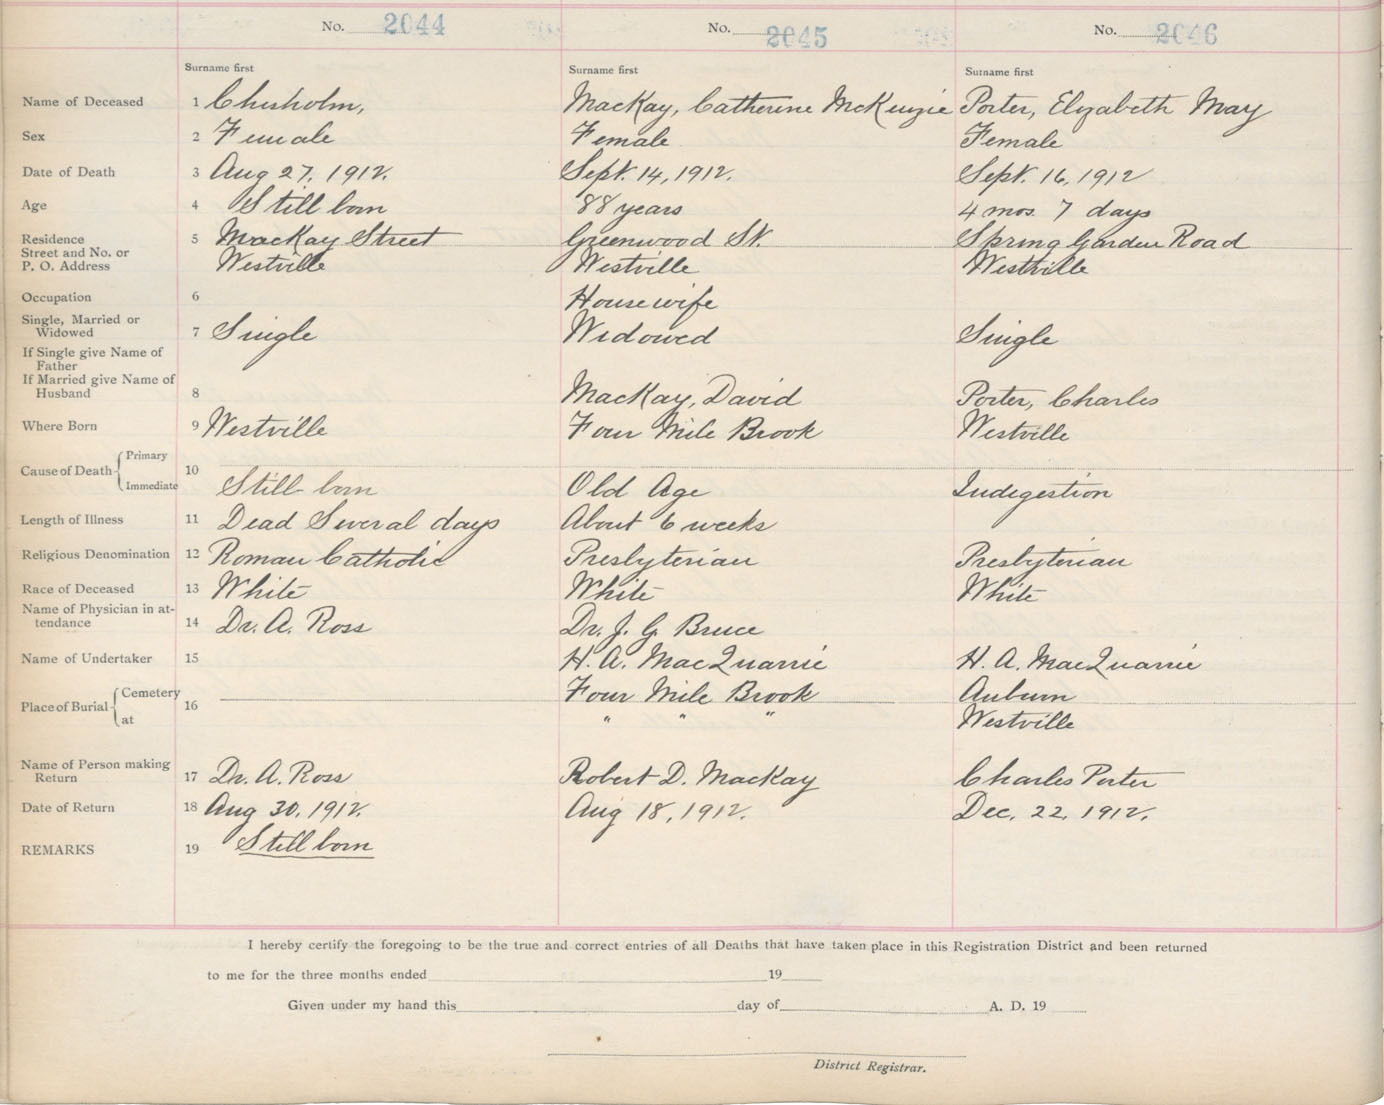 No. 2044 No. 2045 No. 2046
Surname first Surname first Surname first
Name of Deceased 1 Chisholm, MacKay, Catherine McKenzie Porter, Elizabeth May
Sex 2 Female Female Female
Date of Death 3 Aug 27, 1912. Sept. 14, 1912. Sept. 16, 1912
Age 4 Still born 88 years 4 mos. 7 days
Residence 5 MacKay Street Greenwood St. Spring Garden Road
Street and No. or
P. O. Address Westville Westville Westville
Occupation 6 Housewife
Single, Married or
Widowed 7 Single Widowed Single
If Single give Name of
Father
If Married give Name of
Husband 8 MacKay, David Porter, Charles
Where Born 9 Westville Four Mile Brook Westville
Primary
Cause of Death 10
Immediate Still born Old Age Indigestion
Length of Illness 11 Dead Several days About 6 weeks
Religious Denomination 12 Roman Catholic Presbyterian Presbyterian
Race of Deceased 13 White White White
Name of Physician in at-
tendance 14 Dr. A. Ross Dr. J. G. Bruce
Name of Undertaker 15 H. A. MacQuarrie H. A. MacQuarrie
Cemetery Four Mile Brook Auburn
Place of Burial 16
at " " " Westville
Name of Person making
Return 17 Dr. A. Ross Robert D. MacKay Charles Porter
Date of Return 18 Aug 30, 1912. Aug 18, 1912. Dec. 22, 1912.
REMARKS 19 Still born
I hereby certify the foregoing to be the true and correct entries of all Deaths that have taken place in this Registration District and been returned
to me for the three months ended 19
Given under my hand this day of A. D. 19
District Registrar.